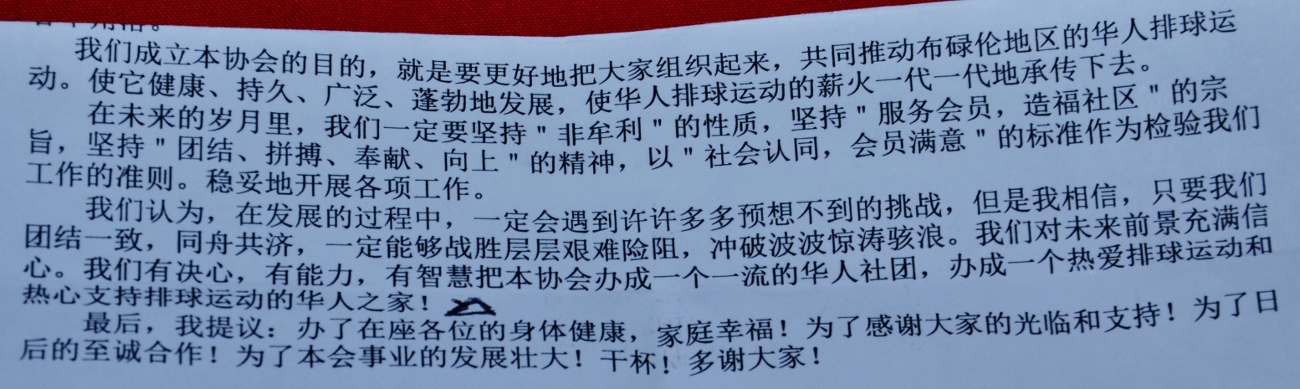 我们成立本协会的目的，就是要更好地把大家组织起来，共同推动布碌伦地区的华人排球运
动。使它健康、持久、广泛、蓬勃地发展，使华人排球运动的薪火一代一代地承传下去。
在未来的岁月里，我们一定要坚持"非牟利"的性质，坚持"服务会员，造福社区"的宗
旨，坚持"团结、拼搏、奉献、向上"的精神，以"社会认同，会员满意"的标准作为检验我们
工作的准则。稳妥地开展各项工作。
我们认为，在发展的过程中，一定会遇到许许多多预想不到的挑战，但是我相信，只要我们
团结一致，同舟共济，一定能够战胜层层艰难险阻，冲破波波惊涛骇浪。我们对未来前景充满信
心。我们有决心，有能力，有智慧把本协会办成一个一流的华人社团，办成一个热爱排球运动和
热心支持排球运动的华人之家！
最后，我提议：办了在座各位的身体健康，家庭幸福！为了感谢大家的光临和支持！为了日
后的至诚合作！为了本会事业的发展壮大！干杯！多谢大家！